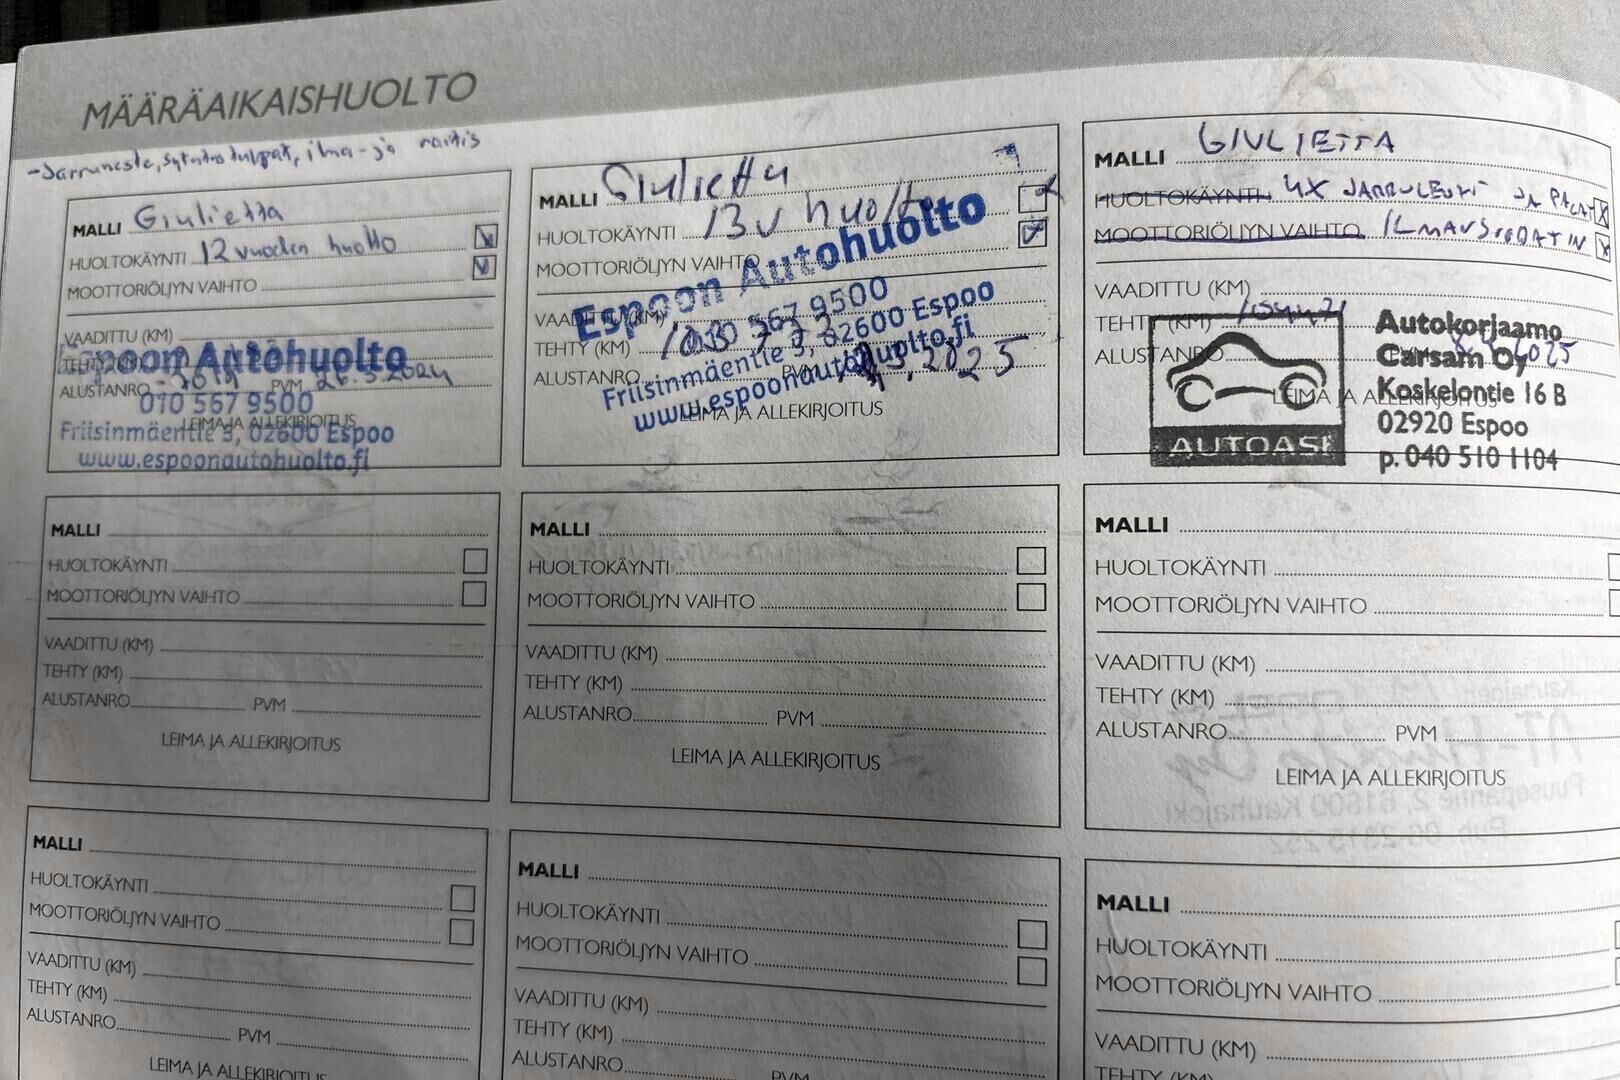 MÄÄRÄAIKAISHUOLTO
-Jarruneste, sytytystulpat, ilma- ja raitis
MALLI Giulietta
HUOLTOKÄYNTI 12 vuoden huolto
MOOTTORIÖLJYN VAIHTO
VAADITTU (KM)
Espoon Autohuolto
ALUSTANRO PVM 26.3.2024
010 567 9500
LEIMA JA ALLEKIRJOITUS
Friisinmäentie 3, 02600 Espoo
www.espoonautohuolto.fi
MALLI Giulietta
HUOLTOKÄYNTI 13v huolto
MOOTTORIÖLJYN VAIHTO
Espoon Autohuolto
VAADITTU (KM)
010 567 9500
TEHTY (KM)
Friisinmäentie 3, 02600 Espoo
ALUSTANRO PVM 2025
www.espoonautohuolto.fi
LEIMA JA ALLEKIRJOITUS
MALLI GIULIETTA
HUOLTOKÄYNTI 4X JARRULEVYT JA PALAT
MOOTTORIÖLJYN VAIHTO
VAADITTU (KM)
TEHTY (KM)
ALUSTANRO 2025
LEIMA JA ALLEKIRJOITUS
AUTOASI
Autokorjaamo
Carsam Oy
Koskelontie 16 B
02920 Espoo
p. 040 510 1104
MALLI
HUOLTOKÄYNTI
MOOTTORIÖLJYN VAIHTO
VAADITTU (KM)
TEHTY (KM)
ALUSTANRO PVM
LEIMA JA ALLEKIRJOITUS
MALLI
HUOLTOKÄYNTI
MOOTTORIÖLJYN VAIHTO
VAADITTU (KM)
TEHTY (KM)
ALUSTANRO PVM
LEIMA JA ALLEKIRJOITUS
MALLI
HUOLTOKÄYNTI
MOOTTORIÖLJYN VAIHTO
VAADITTU (KM)
TEHTY (KM)
ALUSTANRO PVM
LEIMA JA ALLEKIRJOITUS
MALLI
HUOLTOKÄYNTI
MOOTTORIÖLJYN VAIHTO
VAADITTU (KM)
TEHTY (KM)
ALUSTANRO PVM
LEIMA JA ALLEKIRJOITUS
MALLI
HUOLTOKÄYNTI
MOOTTORIÖLJYN VAIHTO
VAADITTU (KM)
TEHTY (KM)
ALUSTANRO PVM
MALLI
HUOLTOKÄYNTI
MOOTTORIÖLJYN VAIHTO
VAADITTU (KM)
TEHTY (KM)